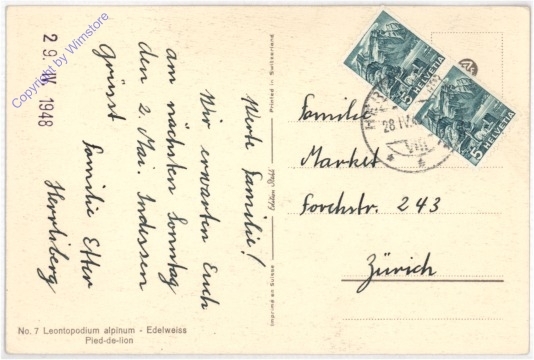 Werte Familie!
Wir erwarten Euch
am nächsten Sonntag
den 2. Mai. Indessen
grüsst
Familie Etter
Herrliberg
29. IV. 1948
Copyright by Wimstore
No. 7 Leontopodium alpinum - Edelweiss
Pied-de-lion
Printed in Switzerland
Edition Stehli
Imprimé en Suisse
HELVETIA
5
HELVETIA
5
28 IV
VIII
Familie
Market
Forchstr. 243
Zürich